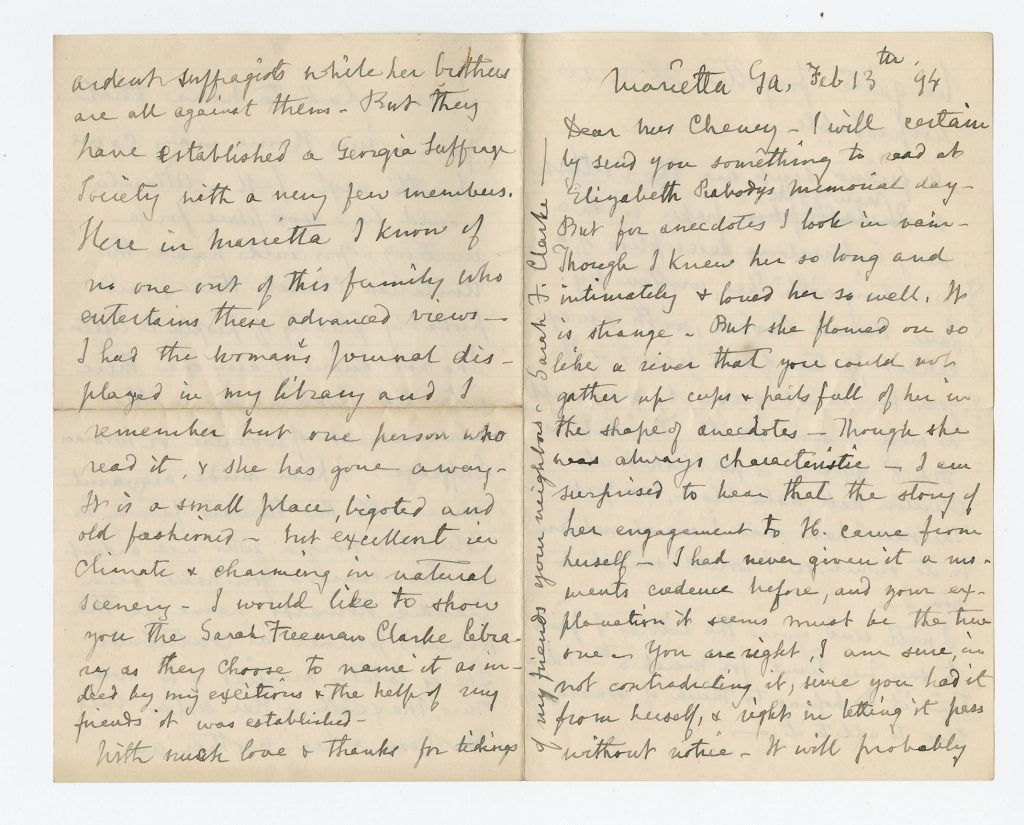 Marietta Ga, Feb 13th, 94
Dear Mrs Cheney - I will certain
ly send you something to read at
Elizabeth Peabody's memorial day -
But for anecdotes I look in vain -
Though I knew her so long and
intimately & loved her so well. It
is strange - But she flowed on so
like a river that you could not
gather up cups & pails full of her in
the shape of anecdotes - Though she
was always characteristic - I am
surprised to hear that the story of
her engagement to H. came from
herself - I had never given it a mo-
ments credence before, and your ex-
planation it seems must be the true
one - You are right, I am sure, in
not contradicting it, since you had it
from herself, & right in letting it pass
without notice - It will probably
ardent suffragists while her brothers
are all against them - But they
have established a Georgia Suffrage
Society with a very few members.
Here in Marietta I know of
no one out of this family who
entertains these advanced views -
I had the Woman's Journal dis-
played in my library and I
remember but one person who
read it, & she has gone away -
It is a small place, bigoted and
old fashioned - but excellent in
climate & charming in natural
scenery - I would like to show
you the Sarah Freeman Clarke libra-
ry as they choose to name it as in-
deed by my exertions & the help of my
friends it was established -
With much love & thanks for tidings
of my friends your neighbors - Sarah F. Clarke —